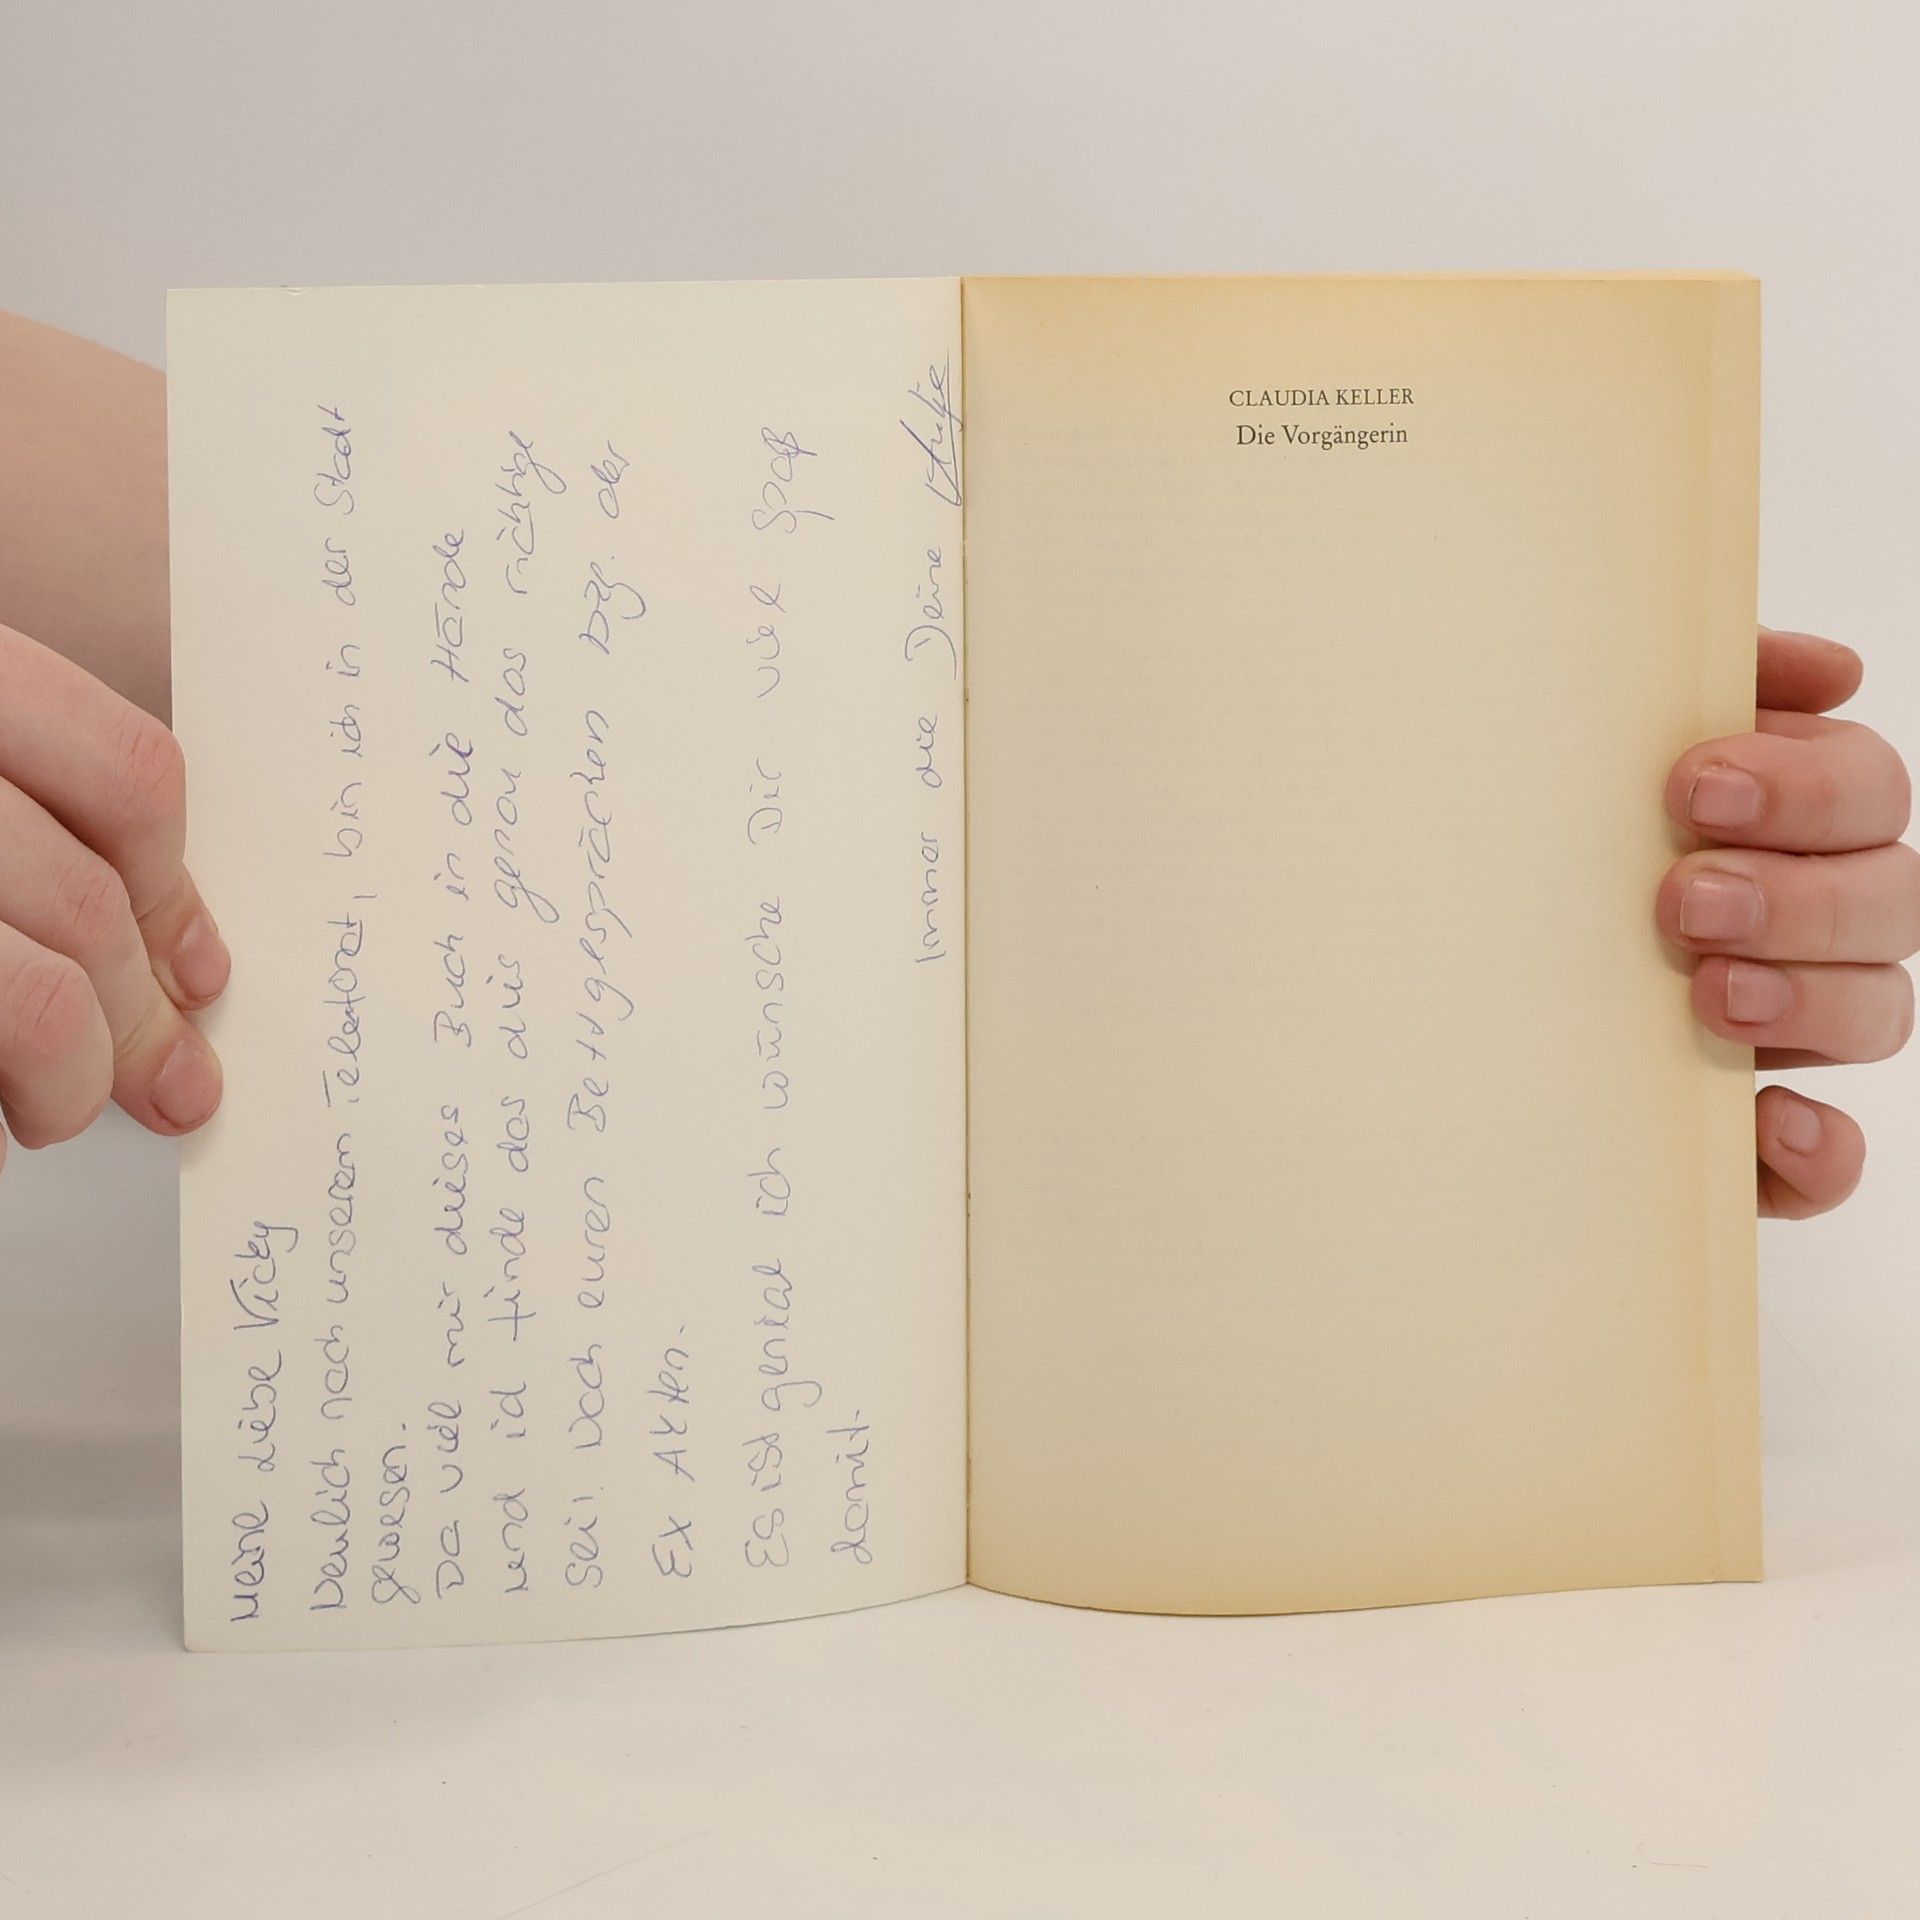 Meine Liebe Vicky
Neulich nach unserem Telefonat, bin ich in der Stadt
gewesen.
Da viel mir dieses Buch in die Hände
und ich finde das dies genau das richtige
sei. Nach euren Bettgesprächen bzg. der
Ex Akten.
Es ist genial ich wünsche Dir viel Spaß
damit.
Immer die Deine
CLAUDIA KELLER
Die Vorgängerin